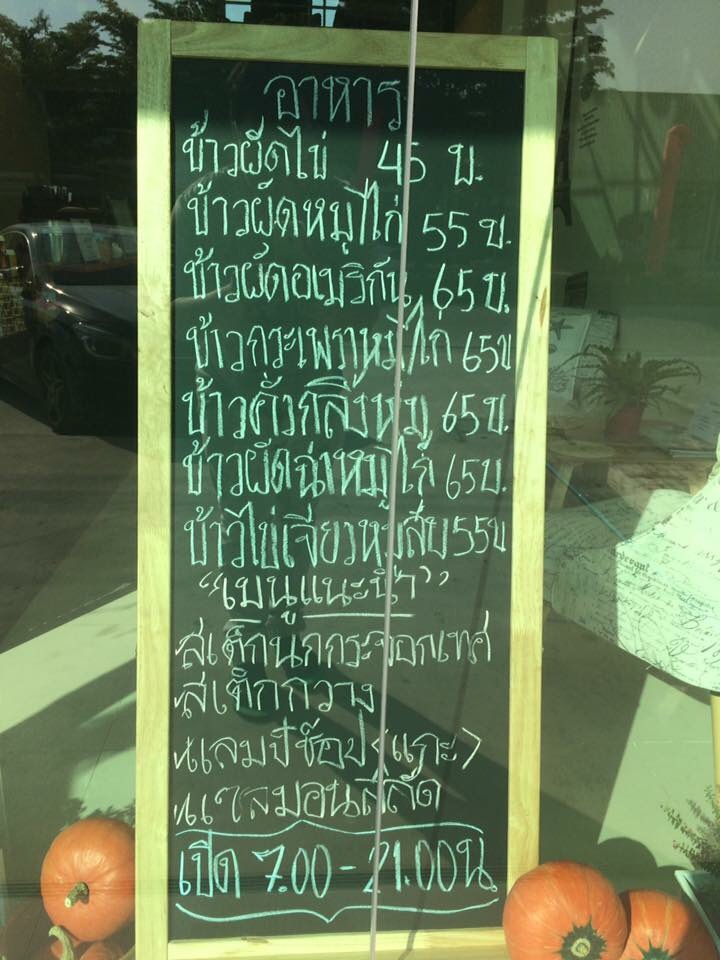 อาหาร
ข้าวผัดไข่ 45 บ.
ข้าวผัดหมู/ไก่ 55 บ.
ข้าวผัดอเมริกัน 65 บ.
ข้าวกระเพราหมู/ไก่ 65บ
ข้าวคั่วกลิ้งหมู 65 บ.
ข้าวผัดฉ่าหมู/ไก่ 65 บ.
ข้าวไข่เจียวหมูสับ 55บ
"เมนูแนะนำ"
สเต็กนกกระจอกเทศ
สเต็กกวาง
แลมป์ช๊อป (แกะ)
แซลมอนสลัด
เปิด 7.00 - 21.00 น.